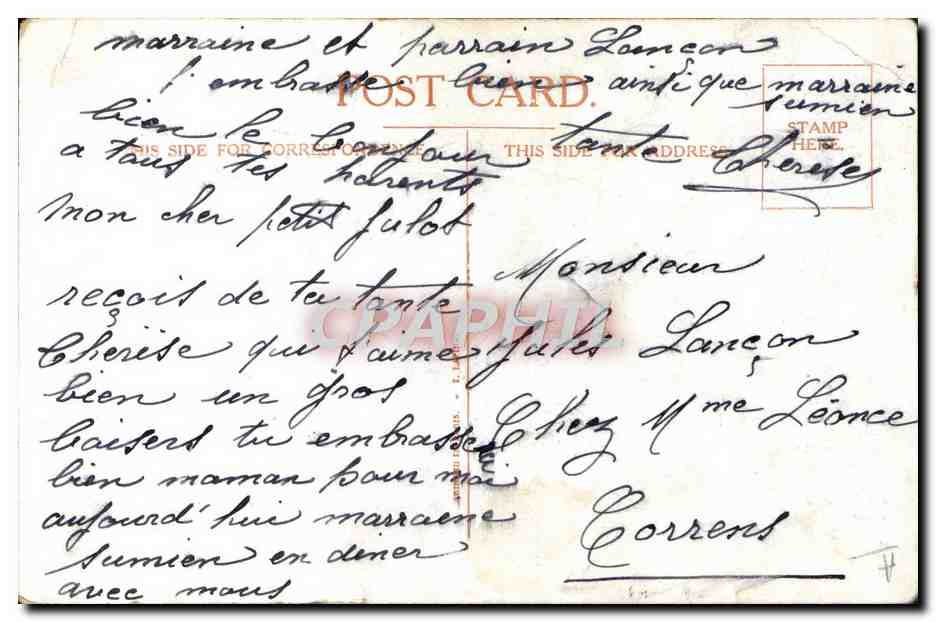 marraine et parrain Lançon
t'embrasse bien ainsi que marraine
sumien
POST CARD.
bien le bonjour tante Therese
a tous tes parents
THIS SIDE FOR CORRESPONDENCE
THIS SIDE FOR ADDRESS
STAMP
HERE.
mon cher petit Julot
reçois de ta tante
Therèse qui t'aime
bien un gros
baisers tu embrasse
bien maman pour moi
aujourd'hui marraine
sumien en diner
avec nous
Monsieur
Jules Lançon
Chez Mme Léonce
Correns
CPAPHIL